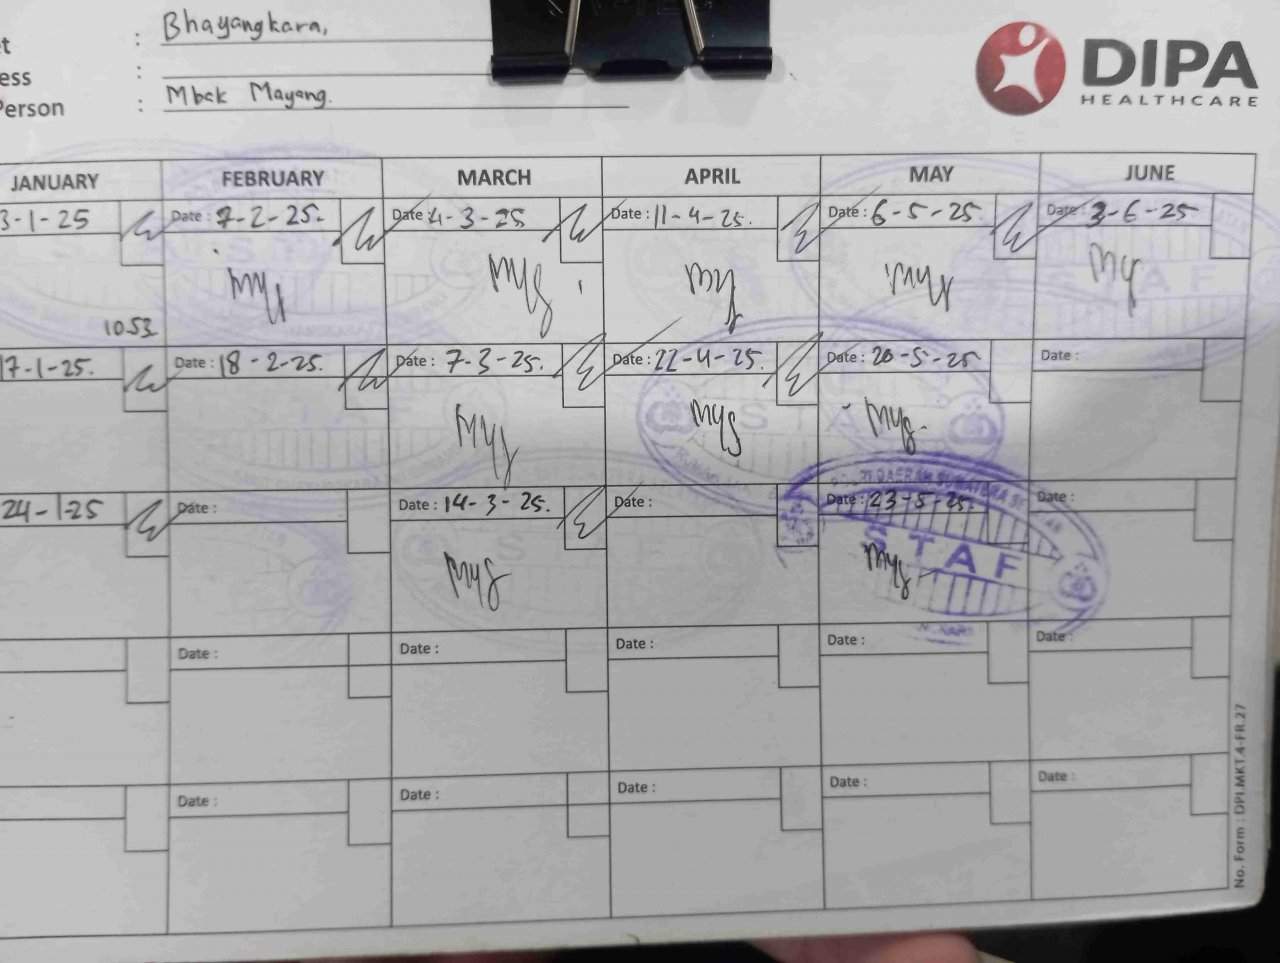 : Bhayangkara,
ess :
Person : Mbak Mayang.
DIPA
HEALTHCARE
JANUARY FEBRUARY MARCH APRIL MAY JUNE
3-1-25 Date : 7-2-25. Date : 4-3-25 Date : 11-4-25. Date : 6-5-25. Date : 3-6-25
1053
17-1-25. Date : 18-2-25. Date : 7-3-25. Date : 22-4-25. Date : 20-5-25 Date :
24-1-25 Date : Date : 14-3-25. Date : Date : 23-5-25. Date :
STAF
Date : Date : Date : Date : Date :
Date : Date : Date : Date : Date :
No. Form : DPI.MKT.4-FR.27